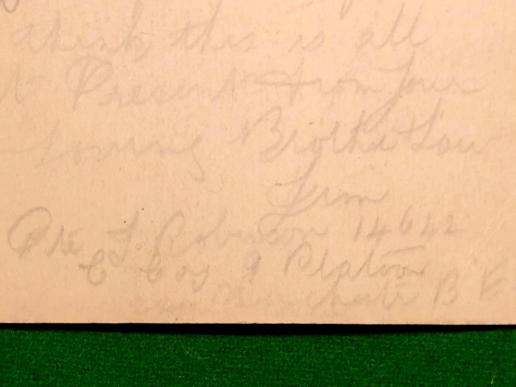 think this is all
at Present from your
Loving Brother Law
Jim
Pte J. Robinson 14642
C Coy 9 Platoon
Manchester B E